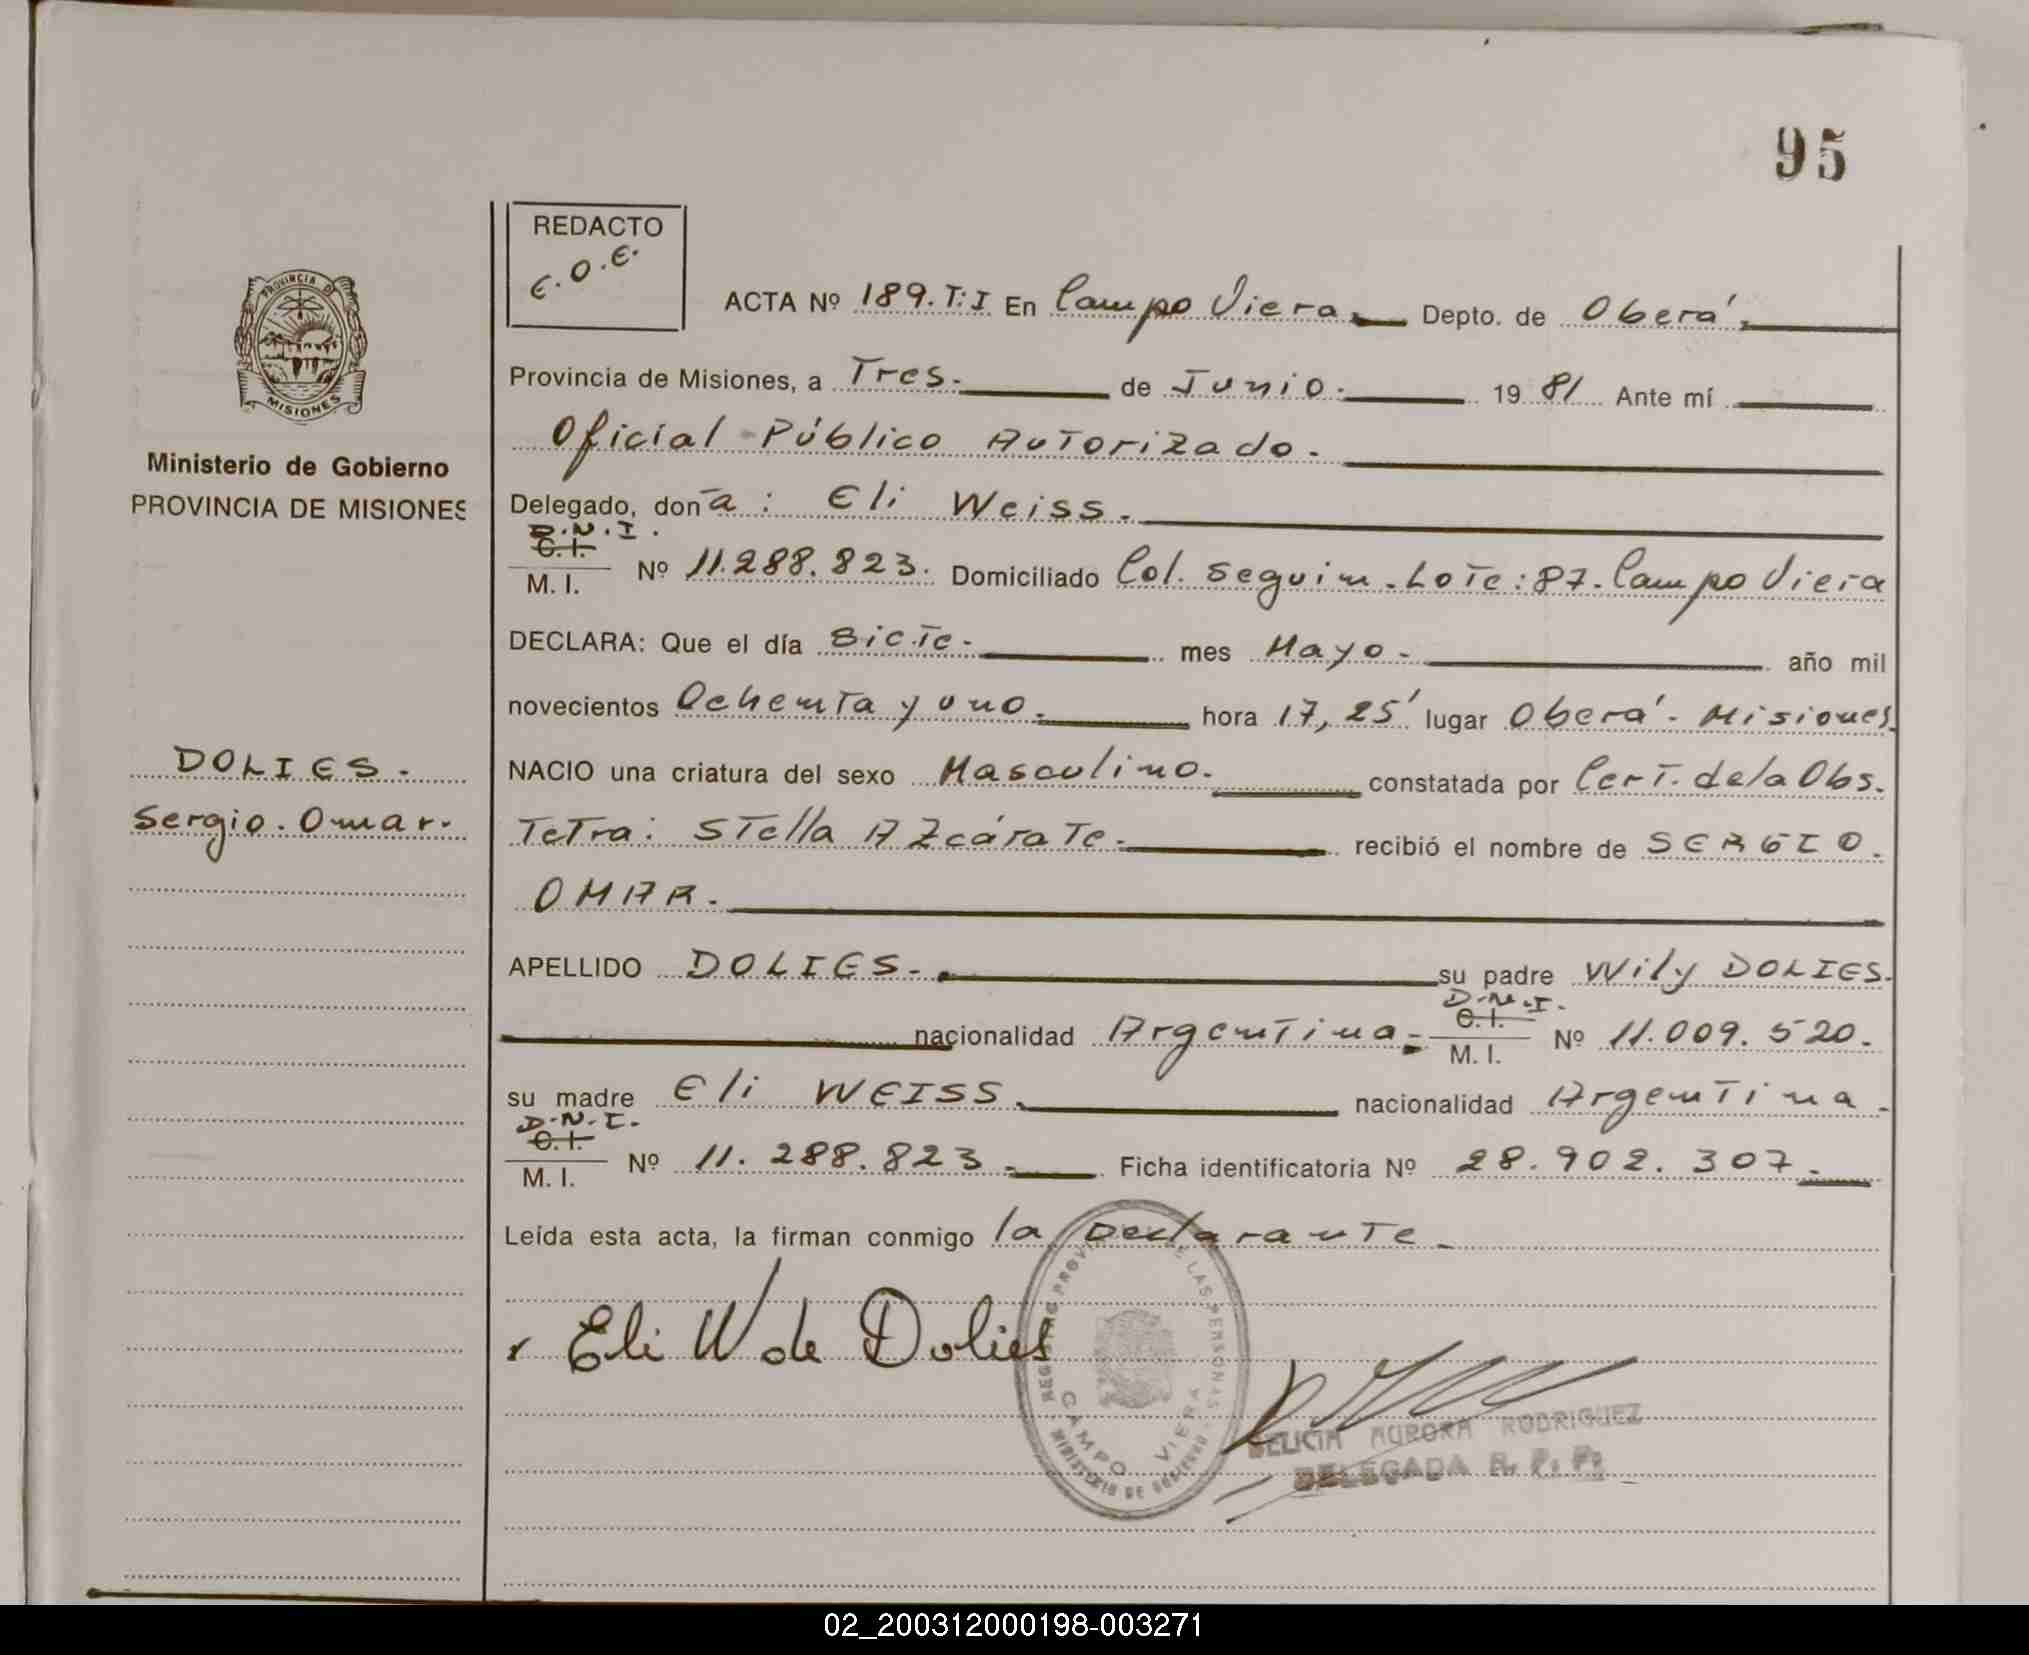 95
REDACTO
E.O.E.
ACTA Nº 189.T:I En Campo Viera. Depto. de Oberá.
Provincia de Misiones, a Tres. de Junio. 1981 Ante mí
Oficial Público Autorizado.
Delegado, donª : Eli Weiss.
D.N.I.
C.I.
M. I. Nº 11.288.823. Domiciliado Col. Seguin. Lote: 87. Campo Viera
DECLARA: Que el día Siete. mes Mayo. año mil
novecientos Ochenta y uno. hora 17,25' lugar Oberá. Misiones
NACIO una criatura del sexo Masculino. constatada por Cert. de la Obs.
Tetra: Stella Azcárate. recibió el nombre de SERGIO.
OMAR.
APELLIDO DOLIES. su padre Wily DOLIES.
D.N.I.
C.I.
nacionalidad Argentina. M. I. Nº 11.009.520.
su madre Eli WEISS. nacionalidad Argentina.
D.N.I.
C.I.
M. I. Nº 11.288.823. Ficha identificatoria Nº 28.902.307.
Leída esta acta, la firman conmigo la Declarante.
Eli W de Dolies
PROVINCIA DE
MISIONES
Ministerio de Gobierno
PROVINCIA DE MISIONES
DOLIES.
Sergio. Omar.
REGISTRO PROVINCIAL DE LAS PERSONAS
CAMPO VIERA
MINISTERIO DE GOBIERNO
AURORA RODRIGUEZ
DELEGADA R. P. P.
02_200312000198-003271